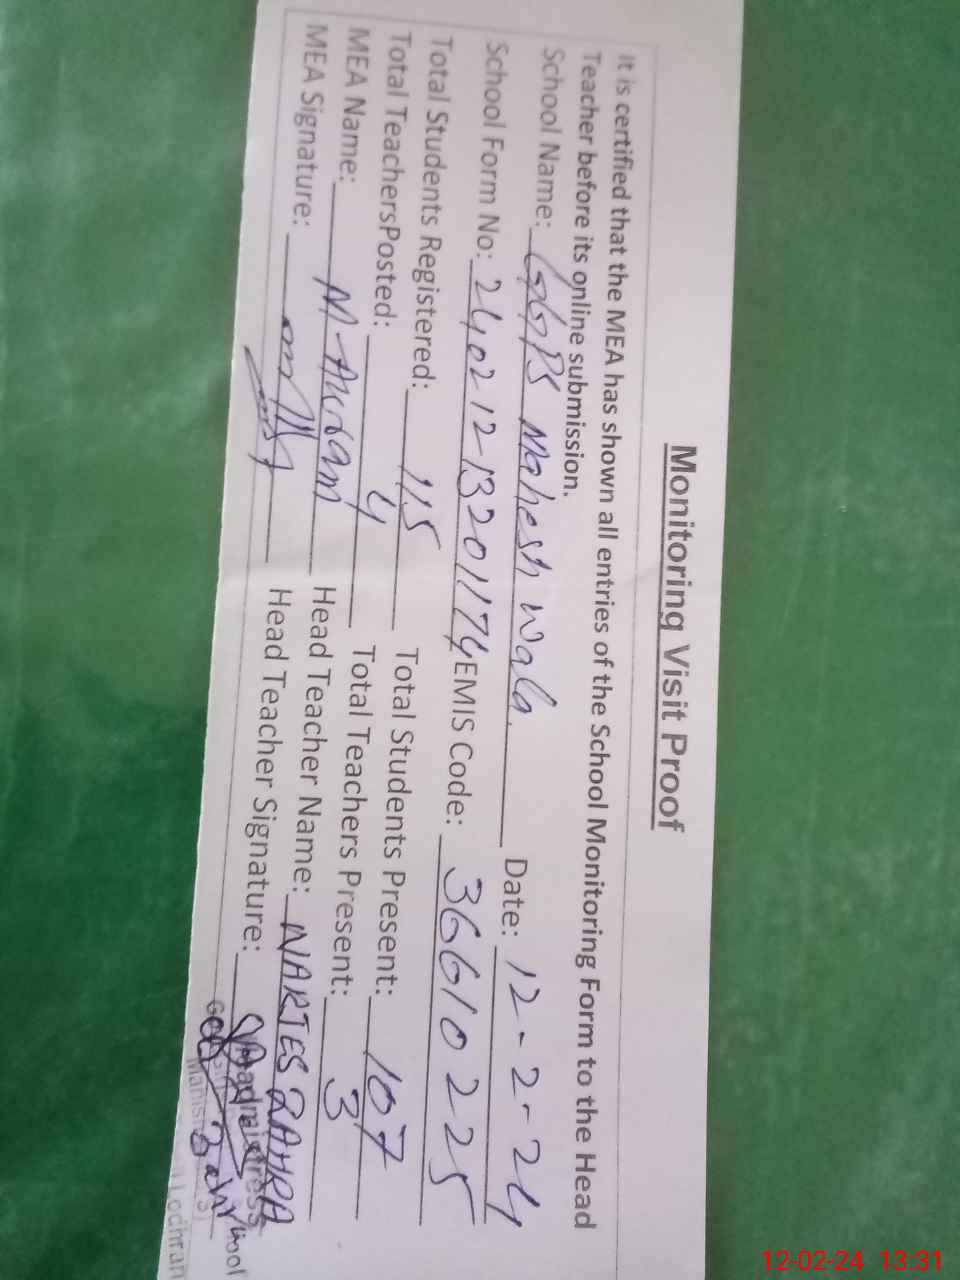 Monitoring Visit Proof
It is certified that the MEA has shown all entries of the School Monitoring Form to the Head
Teacher before its online submission.
School Name: GGPS Mahesh Wala. Date: 12-2-24
School Form No: 24021213201174 EMIS Code: 36610225
Total Students Registered: 115 Total Students Present: 107
Total TeachersPosted: 4 Total Teachers Present: 3
MEA Name: M. Akram Head Teacher Name: NARJES ZAHRA
MEA Signature: Head Teacher Signature:
Headmistress
Lodhran
12-02-24 13:31